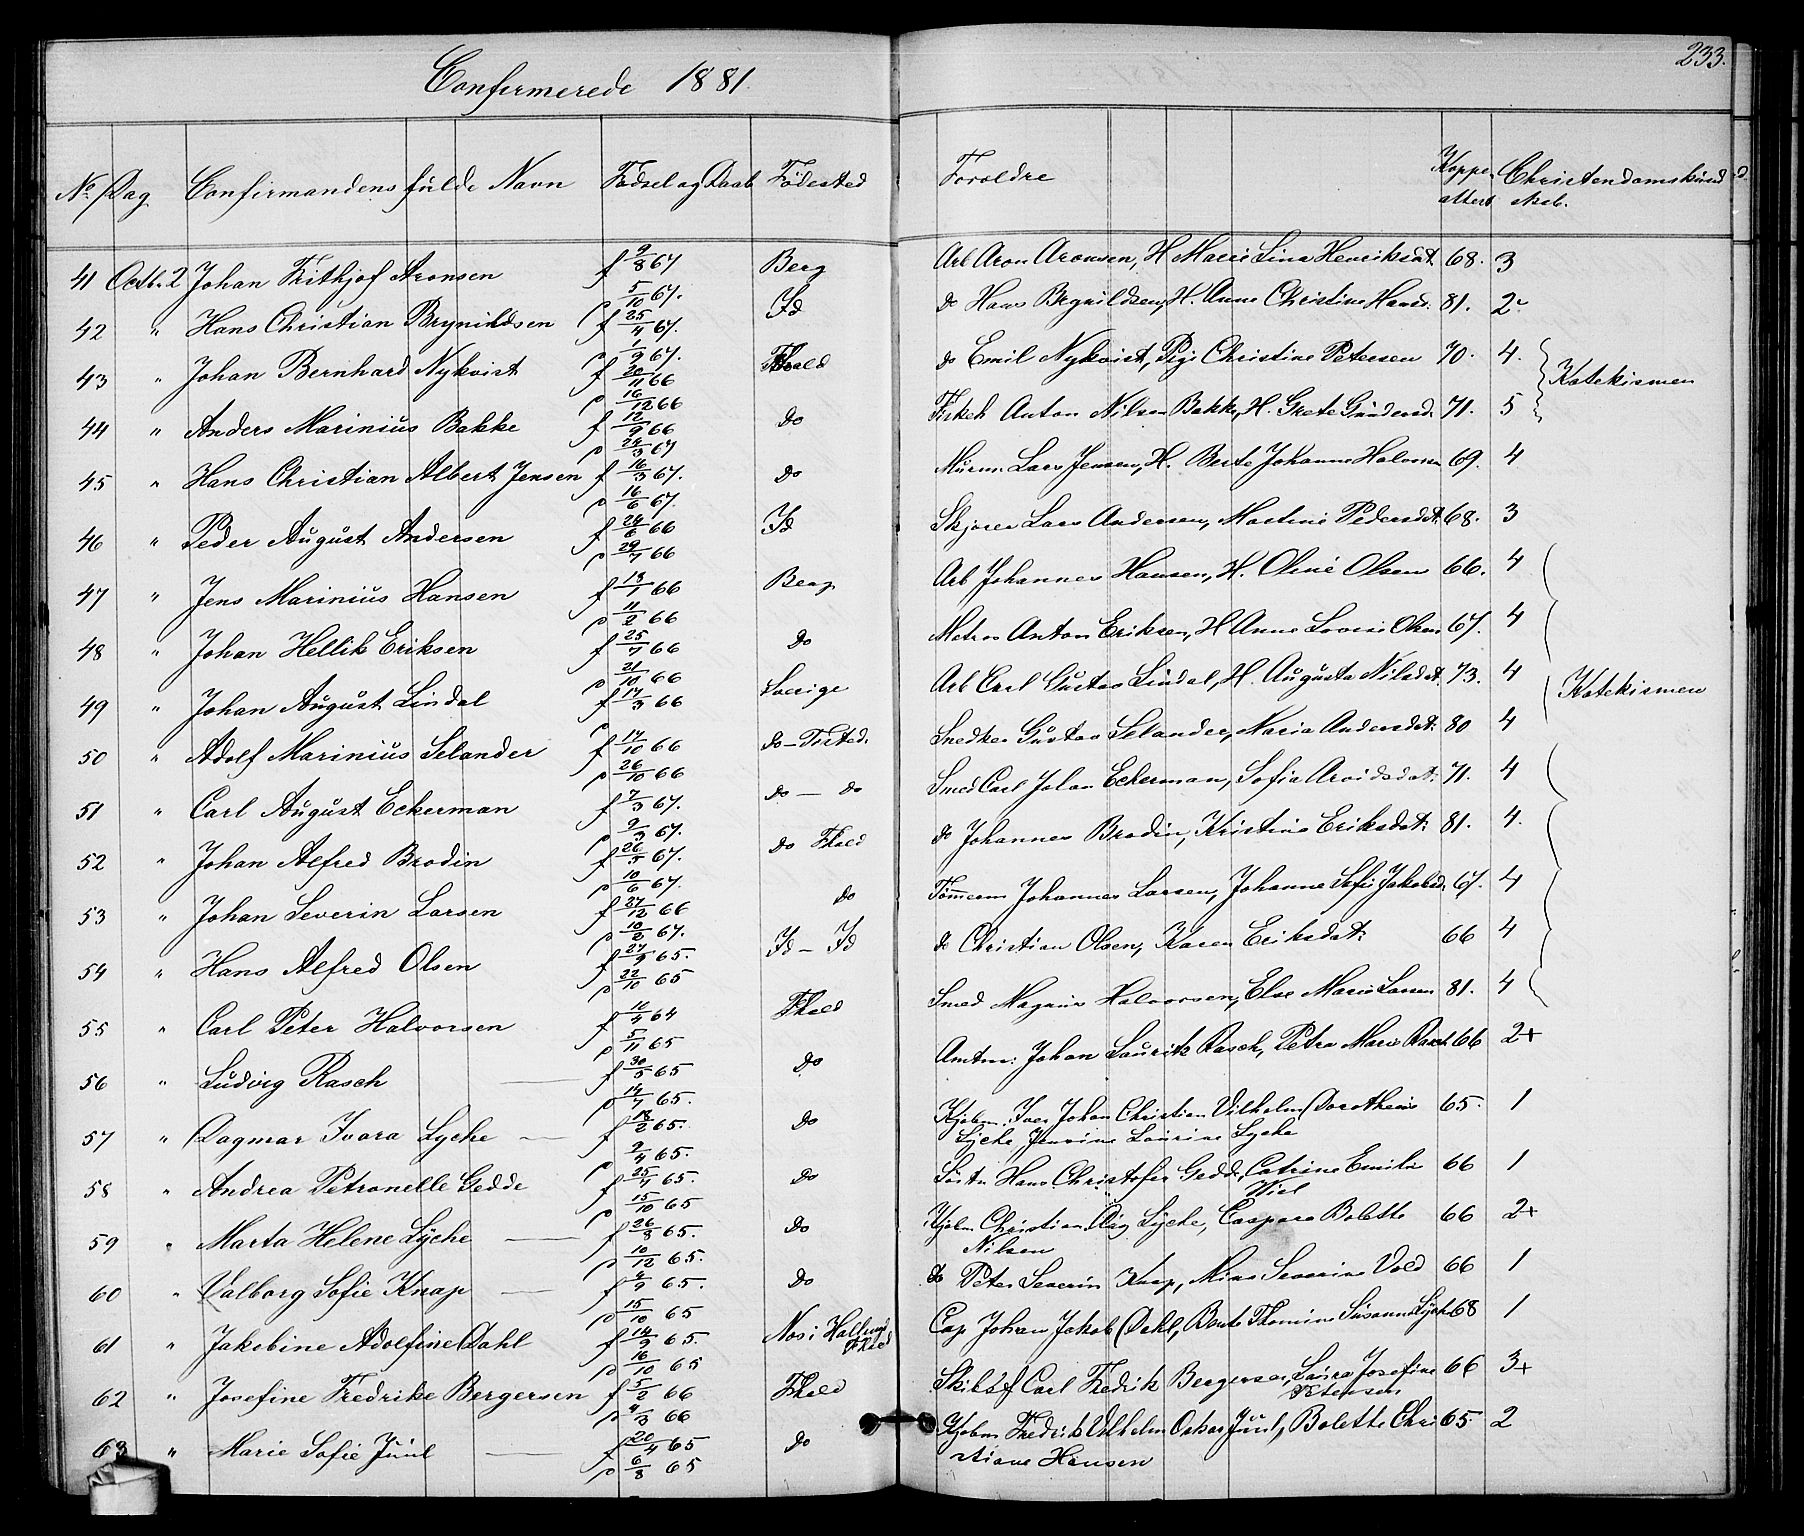 Confirmerede 1881.
233.
No Dag Confirmandens fulde Navn Fødsel og Daab Fødested Forældre Koppeattest Christendomskundskab.
41 Octb. 2 Johan Frithjof Aronsen f 9/8 67 d 5/10 67. Berg Arb Aron Aronsen, H Marie Lina Henriksdt. 68. 3
42 " Hans Christian Brynildsen f 25/4 67. d 1/9 67. Id do Hans Brynildsen, H. Anne Christine Hansd. 81. 2-
43 " Johan Bernhard Nykvist f 20/11 66 d 16/12 66 Fhald do Emil Nykvist, Pige Christine Petersen 70. 4. Katekismen
44 " Anders Marinius Bakke f 12/9 66 d 24/3 67 do Anton Nilsen Bakke, H. Grete Gundersd. 71. 5
45 " Hans Christian Albert Jensen f 16/3 67. d 16/6 67. do Murm. Lars Jensen, H. Berte Johanne Halvorsen 69. 4
46 " Peder August Andersen f 24/6 66 d 29/7 66 Id Lars Andersen, Martine Pedersdt. 68. 3
47 " Jens Marinius Hansen f 13/1 66 d 11/2 66 Berg Arb Johannes Hansen, H. Oline Olsen 66. 4
48 " Johan Hellik Eriksen f 25/7 66 d 21/10 66 do Matros Anton Eriksen, H Anne Lovise Olsen 67. 4
49 " Johan August Lindal f 17/3 66 d Sverige Arb Carl Gustav Lindal, H. Augusta Nilsdt. 73. 4 Katekismen
50 " Adolf Marinius Selander f 17/10 66 d 26/10 66 do - Tisted. Snedker Gustav Selander, Maria Andersdt: 80 4
51 " Carl August Eckerman f 7/3 67. d 9/3 67. do - do Smed Carl Johan Eckerman, Sofia Arvidsdat: 71. 4
52 " Johan Alfred Brodin f 26/5 67. d 10/6 67. do Fhald do Johannes Brodin, Kristine Eriksdat: 81. 4.
53 " Johan Severin Larsen f 27/12 66 d 10/2 67. do Tømmerm Johannes Larsen, Johanne Sofie Jakobsd. 67. 4
54 " Hans Alfred Olsen f 27/9 65. d 22/10 65 Id - Id do Christian Olsen, Karen Eriksdat: 66 4
55 " Carl Peter Halvorsen f 16/4 64 d 5/11 65 Fhald Smed Magnus Halvorsen, Else Marie Larsen 81. 4
56 " Ludvig Rasch f 30/5 65 d 14/7 65. do Amtm: Johan Lauritz Rasch, Petra Marie Rasch 66 2+
57 " Dagmar Ivara Lyche f 18/2 65. d 9/4 65. do Kjøbm. Iver Johan Christian Vilhelm Dorotheus 65. 1
Lyche Jensine Laurine Lyche
58 " Andrea Petronelle Gedde f 25/7 65. d 15/10 65 do Hans Christofer Gedde, Catrine Emilie 66 1
Wiel
59 " Marta Helene Lyche f 26/8 65. d 10/12 65. do Kjøbm Christian Aug Lyche, Caspara Bolette 66 2+
Nilsen
60 " Valborg Sofie Knap f 2/9 65. d 15/10 65 do do Peter Severin Knap, Mina Severine Vold 66 1
61 " Jakobine Adolfine Dahl f 14/9 65. d 16/10 65 Nos i Halland Fhald Cap Johan Jakob Dahl, Bente Thomine Susanna Lyche 68 1
62 " Josefine Fredrike Bergersen f 5/2 66 d 4/3 66 Fhald Skibsf Carl Fredrik Bergersen, Laura Josefine 66 3+
Petersen
63 " Marie Sofie Juul f 20/4 65 d 6/8 65 do Kjøbm Fredrik Vilhelm Oskar Juul, Bolette Chri 65. 2
stiane Hansen